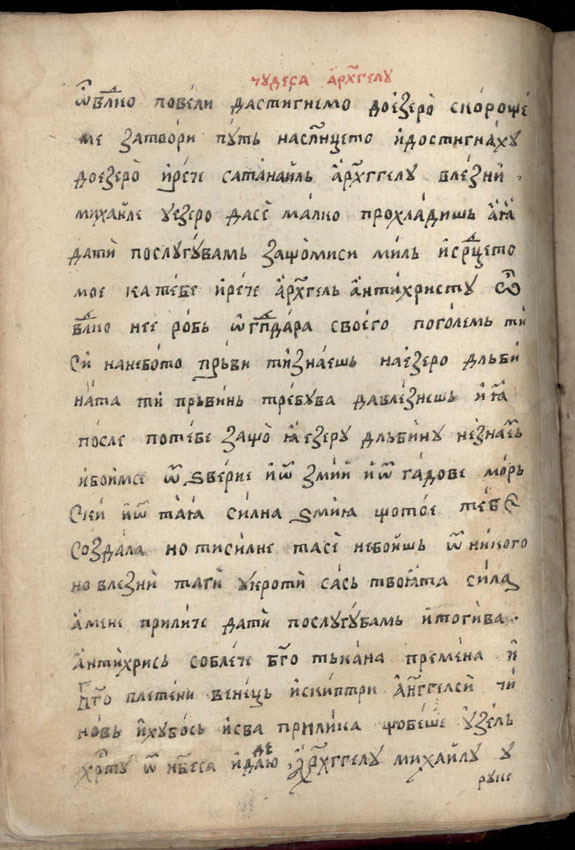 чꙋдеса а҆рх҃гглꙋ
ѿ влⷣко повели дастигнемо доезеро скороще
ме затвори пꙋть насл҃нцето и҆достигнахꙋ
доезеро и҆рече сатанаиль а҆рх҃ггелꙋ влезни
михаиле ꙋезеро дасе малко прохладишь а꙳ꙗ
дати послꙋгꙋвамь защомиси миль и҆срⷣцето
мое катебе и҆рече а҆рх҃гель а҆нтихристꙋ ѽ
влⷣко нее робь ѿ гпⷭ҇дара своего поголемь ти
си нанебото прьви тизнаешь наезеро дльби
ната ти прьвинь требꙋва давлезнешь и҆ꙗ
после потебе защо ꙗезерꙋ дльбинꙋ незнаѣь
ибоимсе ѿ ѕверие и҆ѿ змии и҆ѿ гадове морь
ски и҆ѿ таꙗ силна ѕмиꙗ щотое тебе
создала но тисилне тасе небоишь ѿ никого
но влезни таги ꙋкроти сась твоꙗта сила
а҆мене приличе дати послꙋгꙋбамь и҆тогива
а҆нтихрись соблече бг҃то тькана премена и҆
бг҃то плетени венець и҆скиптри а҆гг҃елси чи
новь и҆хꙋбось и҆сва прилика щобеше ꙋзель
хрⷭ҇тꙋ ѿ нб҃еса и҆даде а҆рх҃ггелꙋ михаилꙋ ꙋ
рꙋке